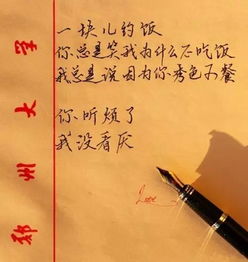 一块儿约饭
你总是笑我为什么不吃饭
我总是说因为你秀色可餐
你听烦了
我没看厌
Love
郑州大学